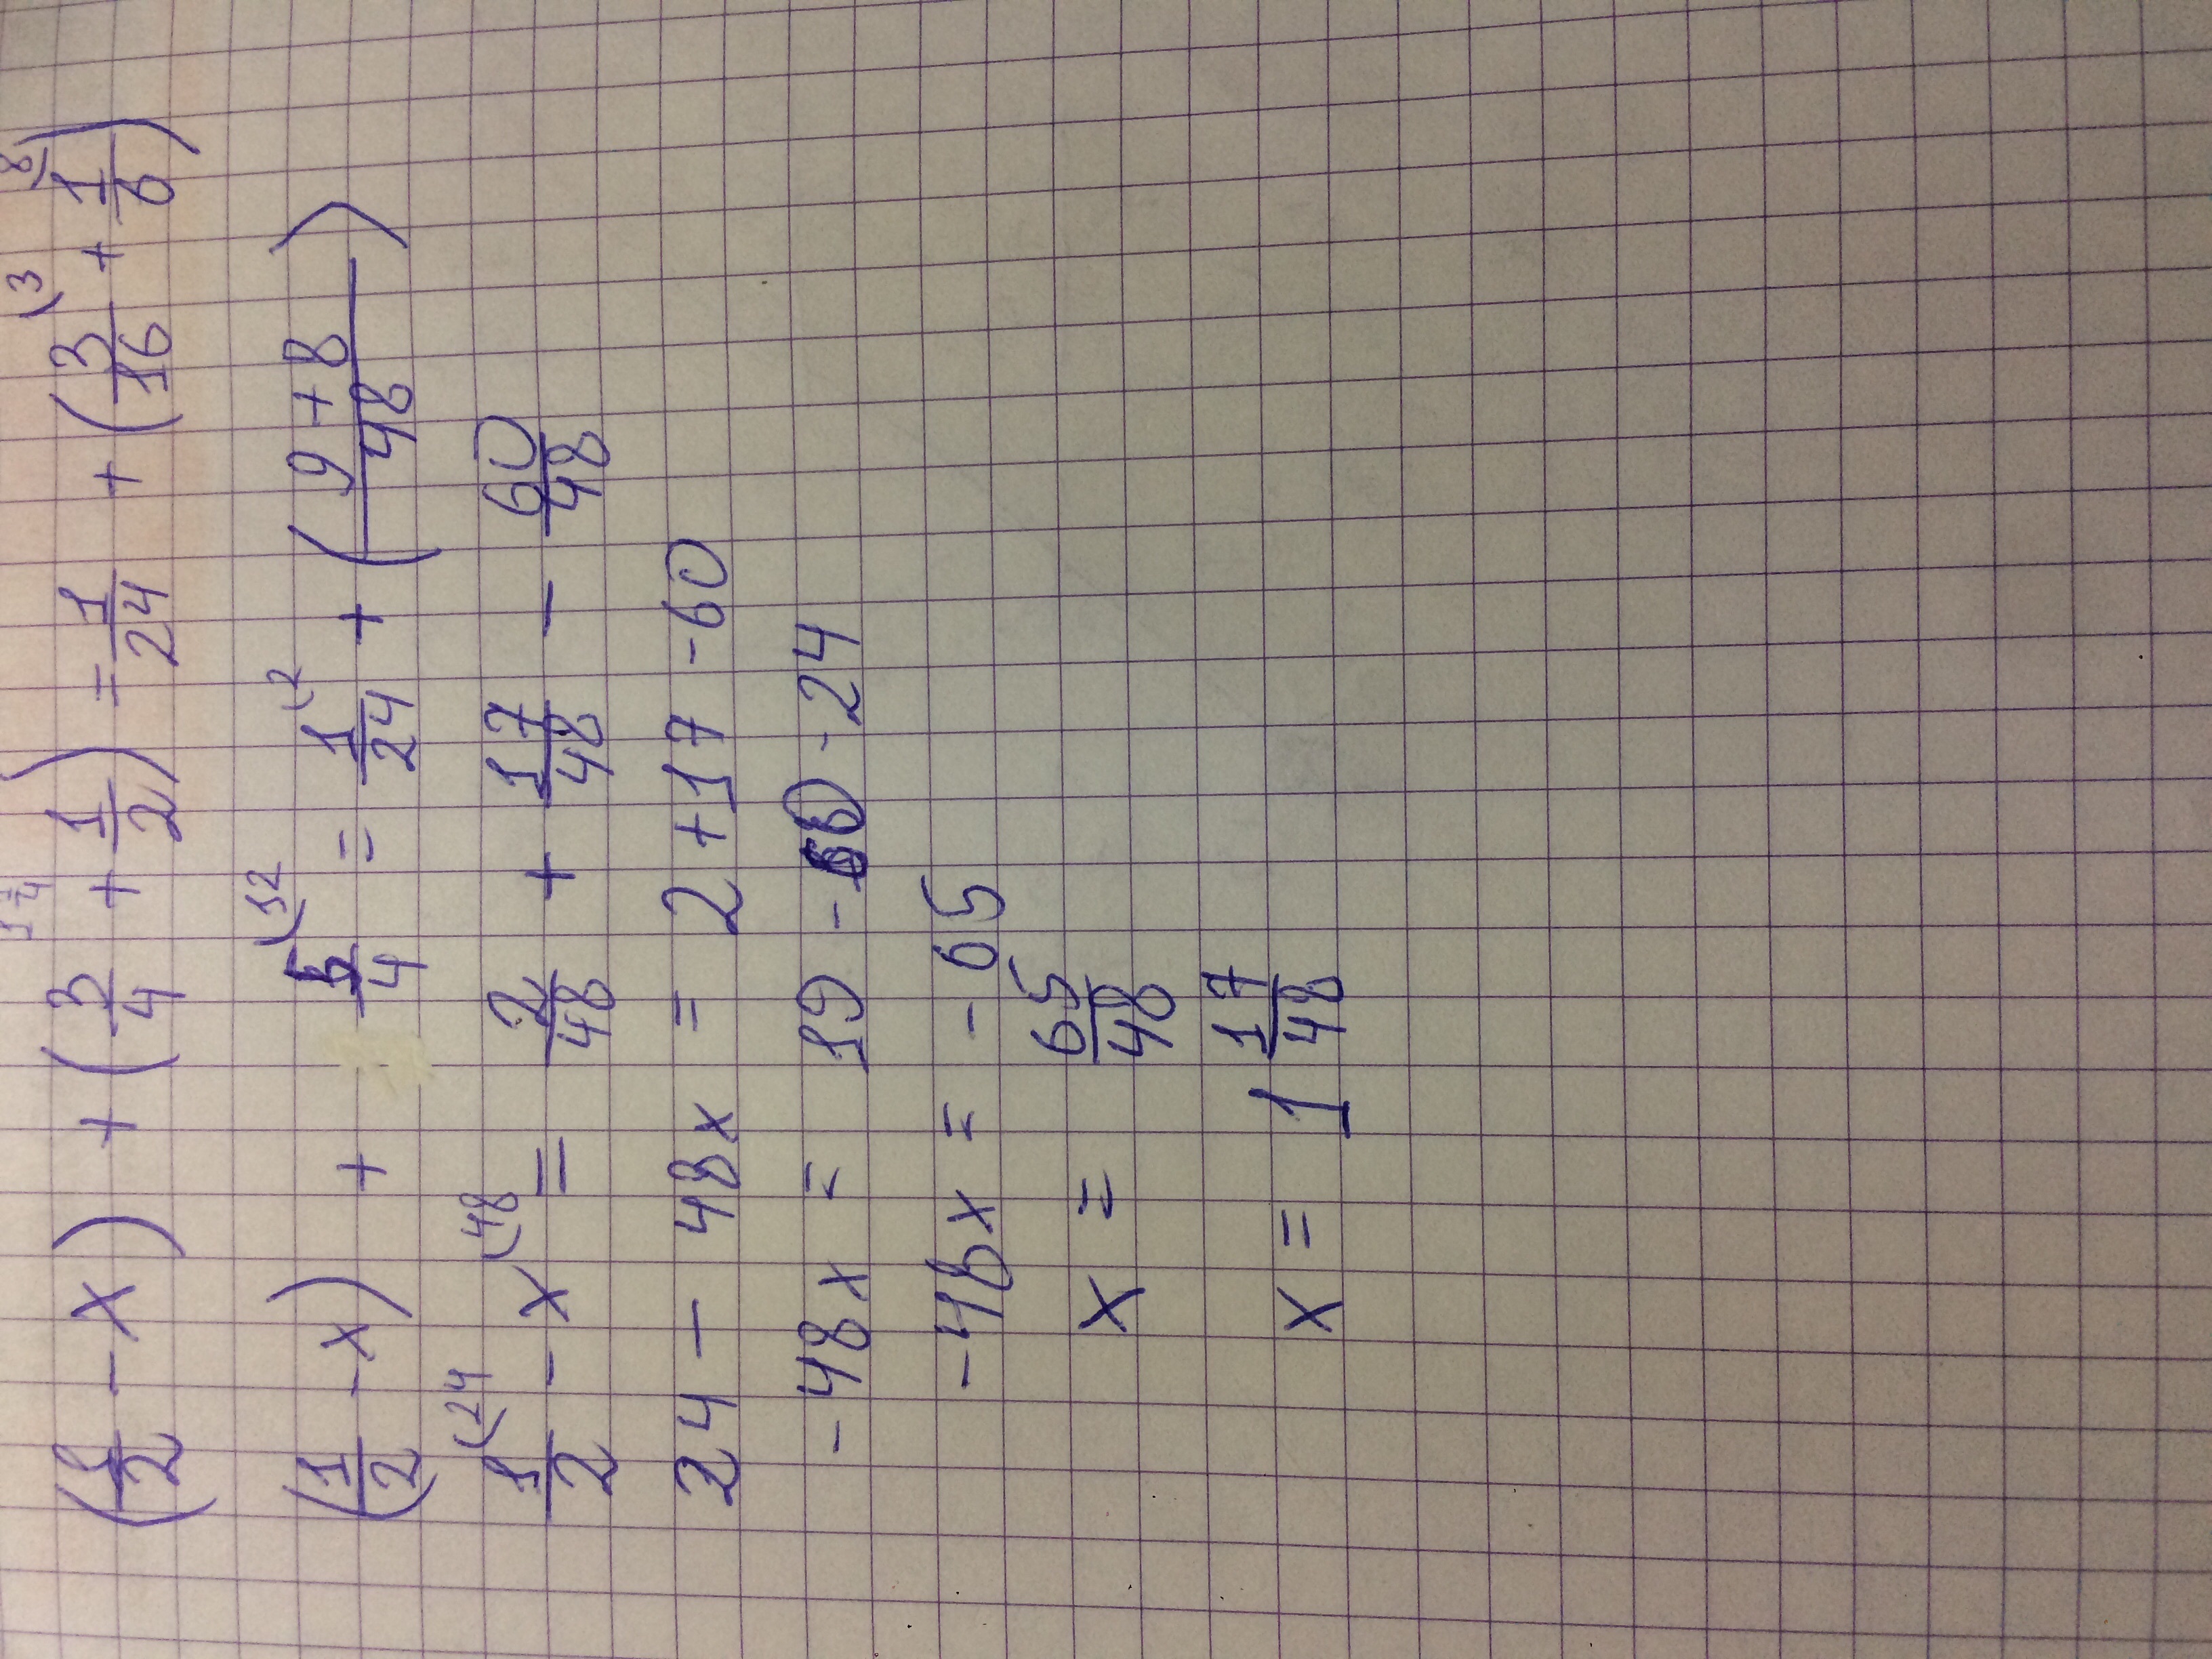 (1/2 - x) + (3/4 + 1/2) = 1/24 + (3/16 (3 + 1/6 (8)
(1/2 - x) + 5/4 (12 = 1/24 (2 + (9 + 8/48)
1/2 (24 - x (48 = 2/48 + 17/48 - 60/48
24 - 48x = 2 + 17 - 60
-48x = 19 - 60 - 24
-48x = -65
x = 65/48
x = 1 17/48